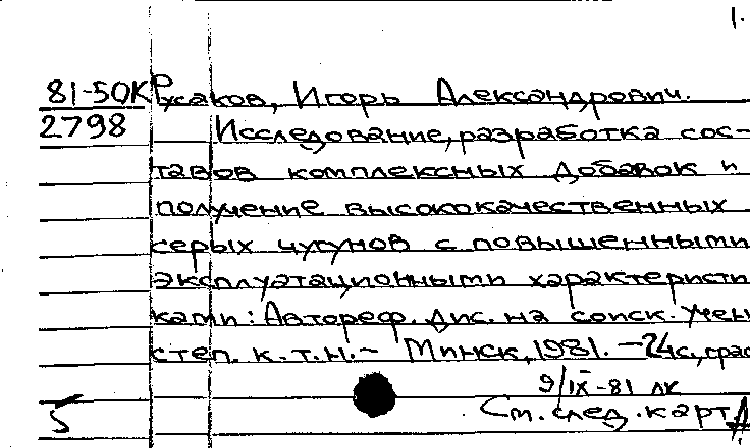 1.
81-50К Русаков, Игорь Александрович.
2798 Исследование, разработка сос-
тавов комплексных добавок и
получение высококачественных
серых чугунов с повышенными
эксплуатационными характеристи
ками: Автореф. дис. на соиск. учен
степ. к.т.н. - Минск, 1981. - 24 с.,
9/IX-81 лк
5 См. след. карт.